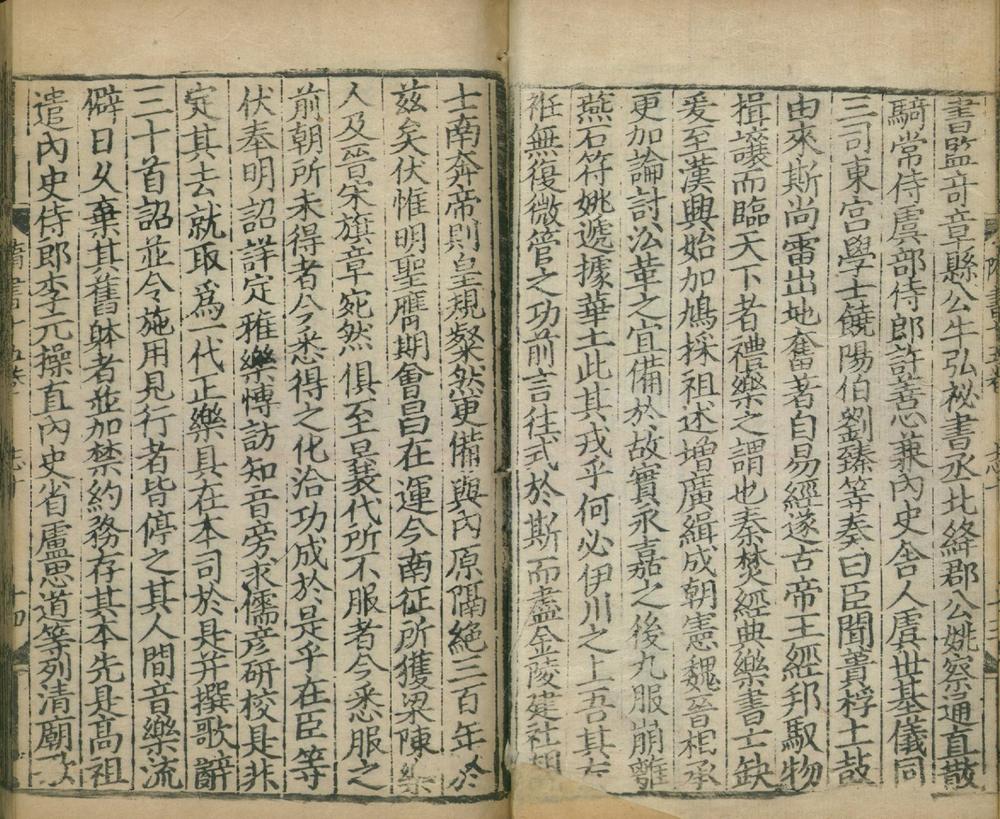 書監竒章縣公牛弘祕書丞北絳郡公姚察通直散
騎常侍虞部侍郎許善心兼內史舍人虞世基儀同
三司東宮學士饒陽伯劉臻等奏曰臣聞蕢桴土鼓
由來斯尚雷出地奮著自易經邃古帝王經邦馭物
揖讓而臨天下者禮樂之謂也秦焚經典樂書亡缺
爰至漢興始加鳩採祖述增廣緝成朝憲魏晉相承
更加論討㳂革之宜備於故實永嘉之後九服崩離
燕石符姚遞據華土此其戎乎何必伊川之上吾其左
袵無復微管之功前言往式於斯而盡金陵建社朝
士南奔帝則皇規粲然更備與內原隔絕三百年於
茲矣伏惟明聖膺期會昌在運今南征所獲梁陳樂
人及晉宋旗章宛然俱至曩代所不服者今悉服之
前朝所未得者今悉得之化洽功成於是乎在臣等
伏奉明詔詳定雅樂愽訪知音旁求儒彥研校是非
定其去就取爲一代正樂具在本司於是并撰歌辭
三十首詔並令施用見行者皆停之其人間音樂流
僻日久棄其舊躰者並加禁約務存其本先是高祖
遣內史侍郎李元操直內史省盧思道等列清廟歌